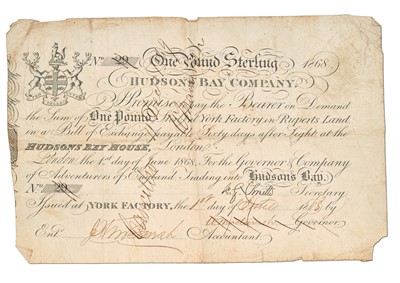 No 29 One Pound Sterling 1868
HUDSON'S BAY COMPANY.
I Promise to pay the Bearer on Demand
the Sum of One Pound at York Factory in Ruperts Land
in a Bill of Exchange payable Sixty days after Sight at the
HUDSONS BAY HOUSE, London
London the 1st day of June 1868, For the Governor & Company
of Adventurers of England Trading into Hudsons Bay.
No 29 Secretary
Issued at YORK FACTORY, the day of 18 by
Governor
Ent Accountant